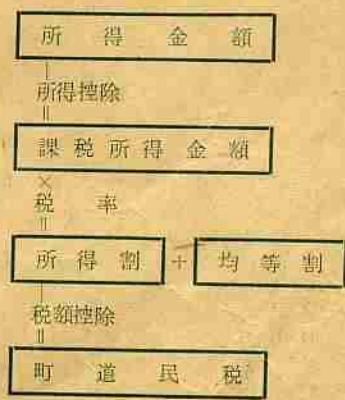 所得金額
－
所得控除
＝
課税所得金額
×
税率
＝
所得割 + 均等割
－
税額控除
＝
町道民税